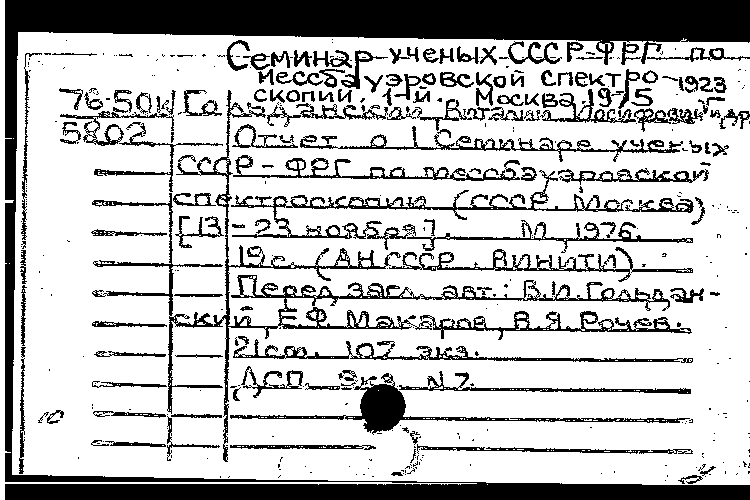 Семинар ученых СССР-ФРГ по
мессбауэровской спектро-
скопии. 1-й. Москва, 1975
1923
76-50к Гольданский Виталий Иосифович и др.
5802 Отчет о I Семинаре ученых
СССР-ФРГ по мессбауэровской
спектроскопии (СССР. Москва)
[13-23 ноября]. М, 1976.
19с. (АН СССР. ВИНИТИ).
Перед загл. авт.: В.И.Гольдан-
ский, Е.Ф. Макаров, В.Я. Рочев.
21см. 107 экз.
ДСП. Экз. N7.
10